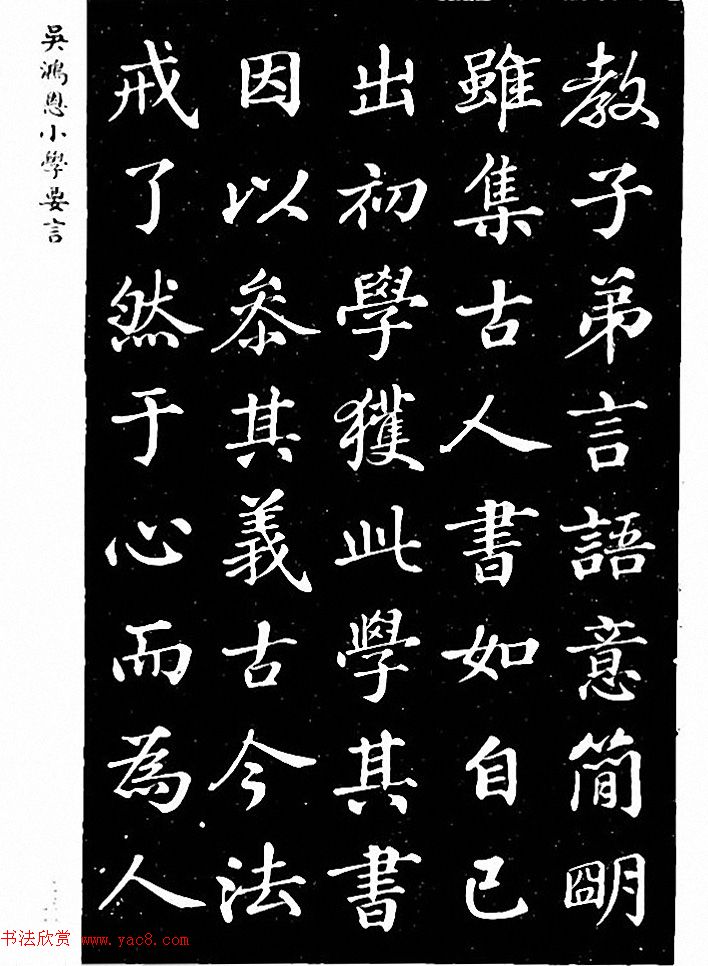 教子弟言語意簡明
雖集古人書如自己
出初學獲此學其書
因以叅其義古今法
戒了然于心而為人
吳鴻恩小學要言
书法欣赏 www.yac8.com